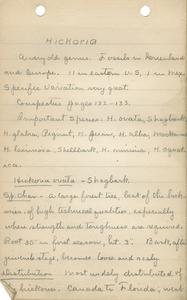 HICKORIA
A very old genus. Fossils in Greenland
and Europe. 11 in eastern U.S, 1 in Mex.
Specific Variation very great.
Composites pages 132-133.
Important Species: H. ovata, Shagbark,
H. glabra, Pignut, H. H. alba, Mockernut
H. laciniosa, Shellbark, H. minima, H. aquat-
ica.
Hickoria ovata - Shagbark
Sp. char. - a large forest tree, best of the hick-
ories, of high technical qualities, especially
when strength and toughness are required.
Root 35" in first season, but 3". Bark, after
juvenile stage, becomes loose and scaly.
Distribution Most widely distributed of
hickories. Canada to Florida, west